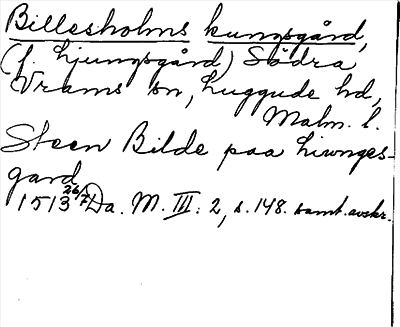 Billesholms kungsgård,
(f. Ljungsgård) Södra
Vrams sn, Luggude hd,
Malm. l.
Steen Bilde paa liwnges-
gard
1513 26/7 Da. M. III: 2, s. 148. samt. avskr.